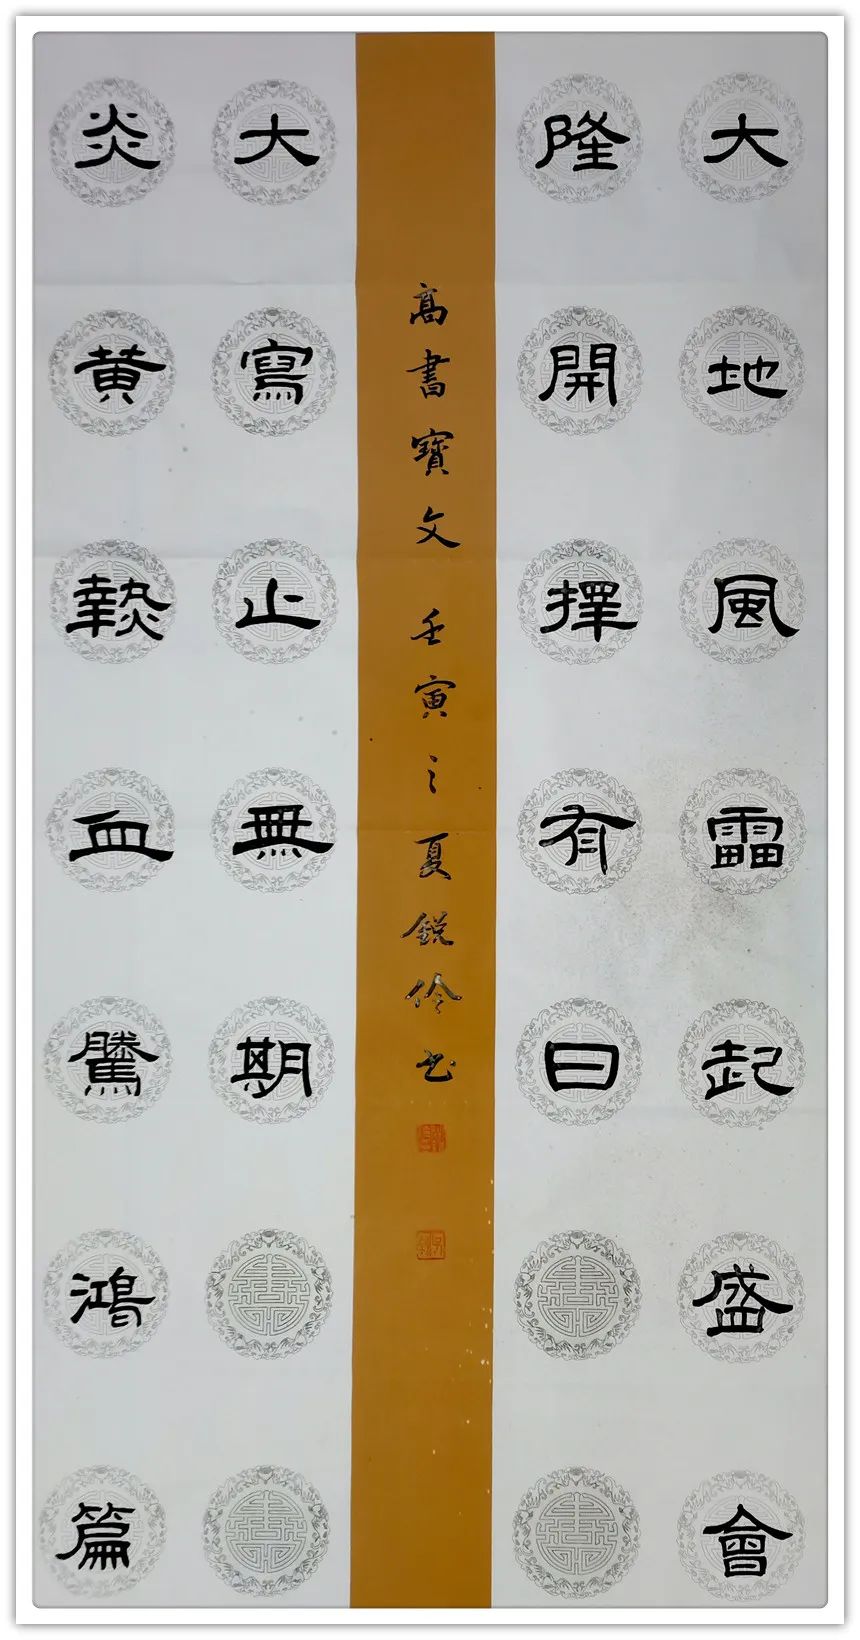 大地風雷起盛會
隆開擇有日
炎黄熱血騰鴻篇
大寫止無期
高書寶文 壬寅之夏鋭伶书